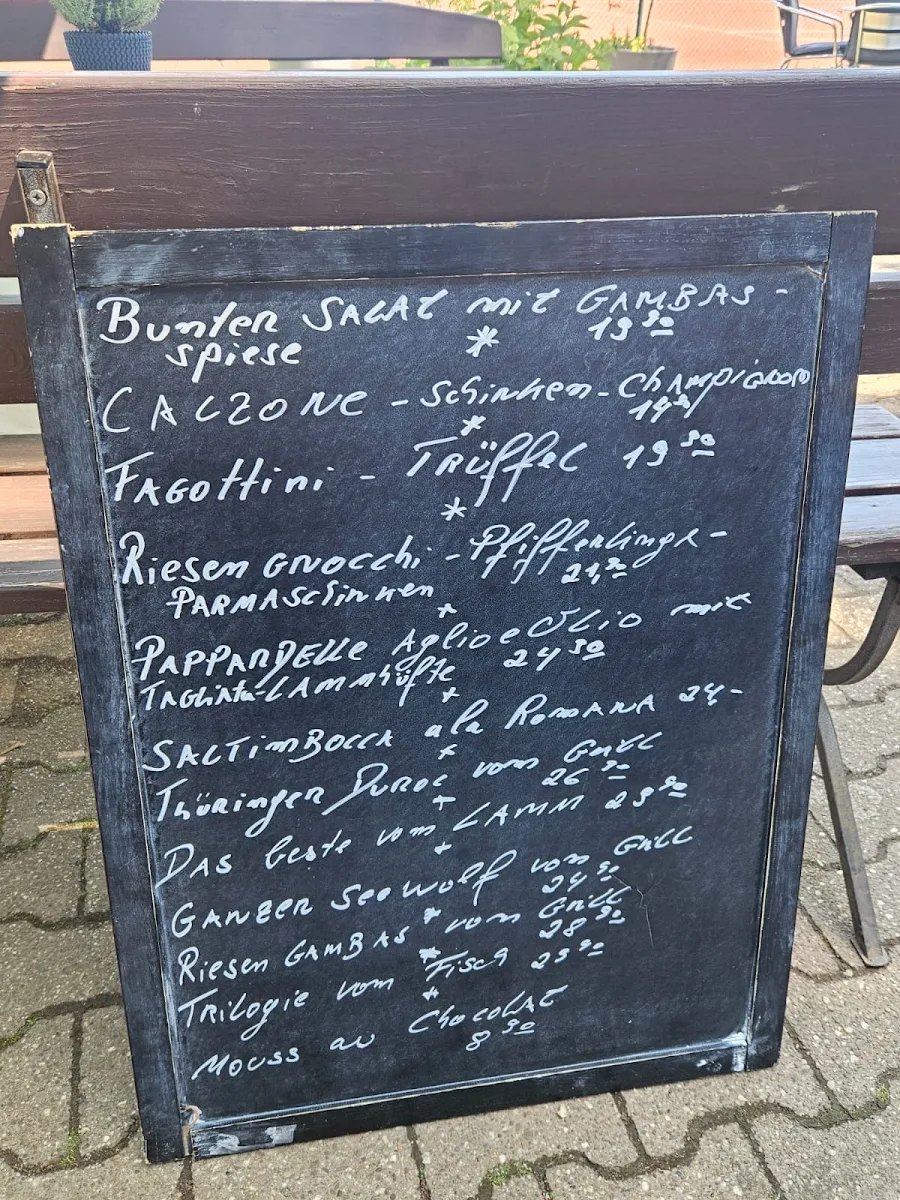 Bunter SALAT mit GAMBAS-
spiese * 19 90
CALZONE - Schinken - Champignon
* 14 90
FAGOttini - TRÜffel 19 90
*
Riesen GNOCChi - Pfifferlinge -
PARMASchinken 21,90
*
PAPPARDELLE Aglio e OLio mit
TAGliata-LAMMhüfte 24 90
*
SALTIMBOCCA ala ROMANA 24,-
*
Thüringer Duroc vom Grill
* 26 90
DAS beste vom LAMM 29 90
*
GANZER Seewolf vom Grill
24 90
*
Riesen GAMBAS vom Grill
* 28 90
TRilogie vom Fisch 29 90
*
Mouss au ChocolAt
8 90